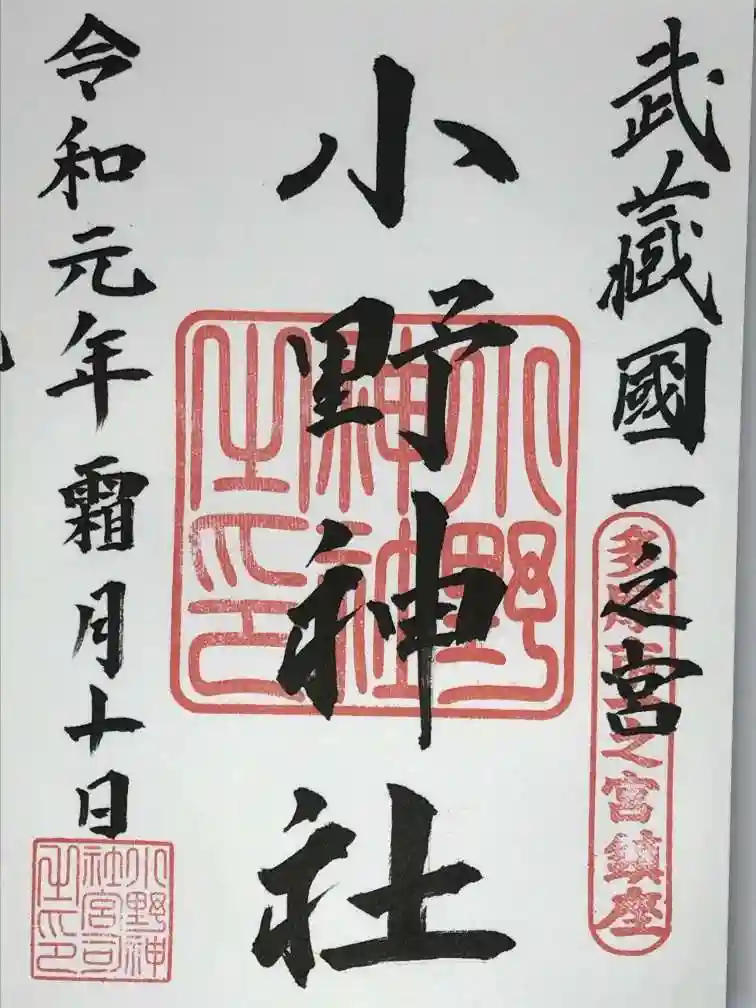 武藏國一之宮
多摩市一之宮鎮座
小野神社
小野神社之印
令和元年霜月十日
小野神社宮司之印